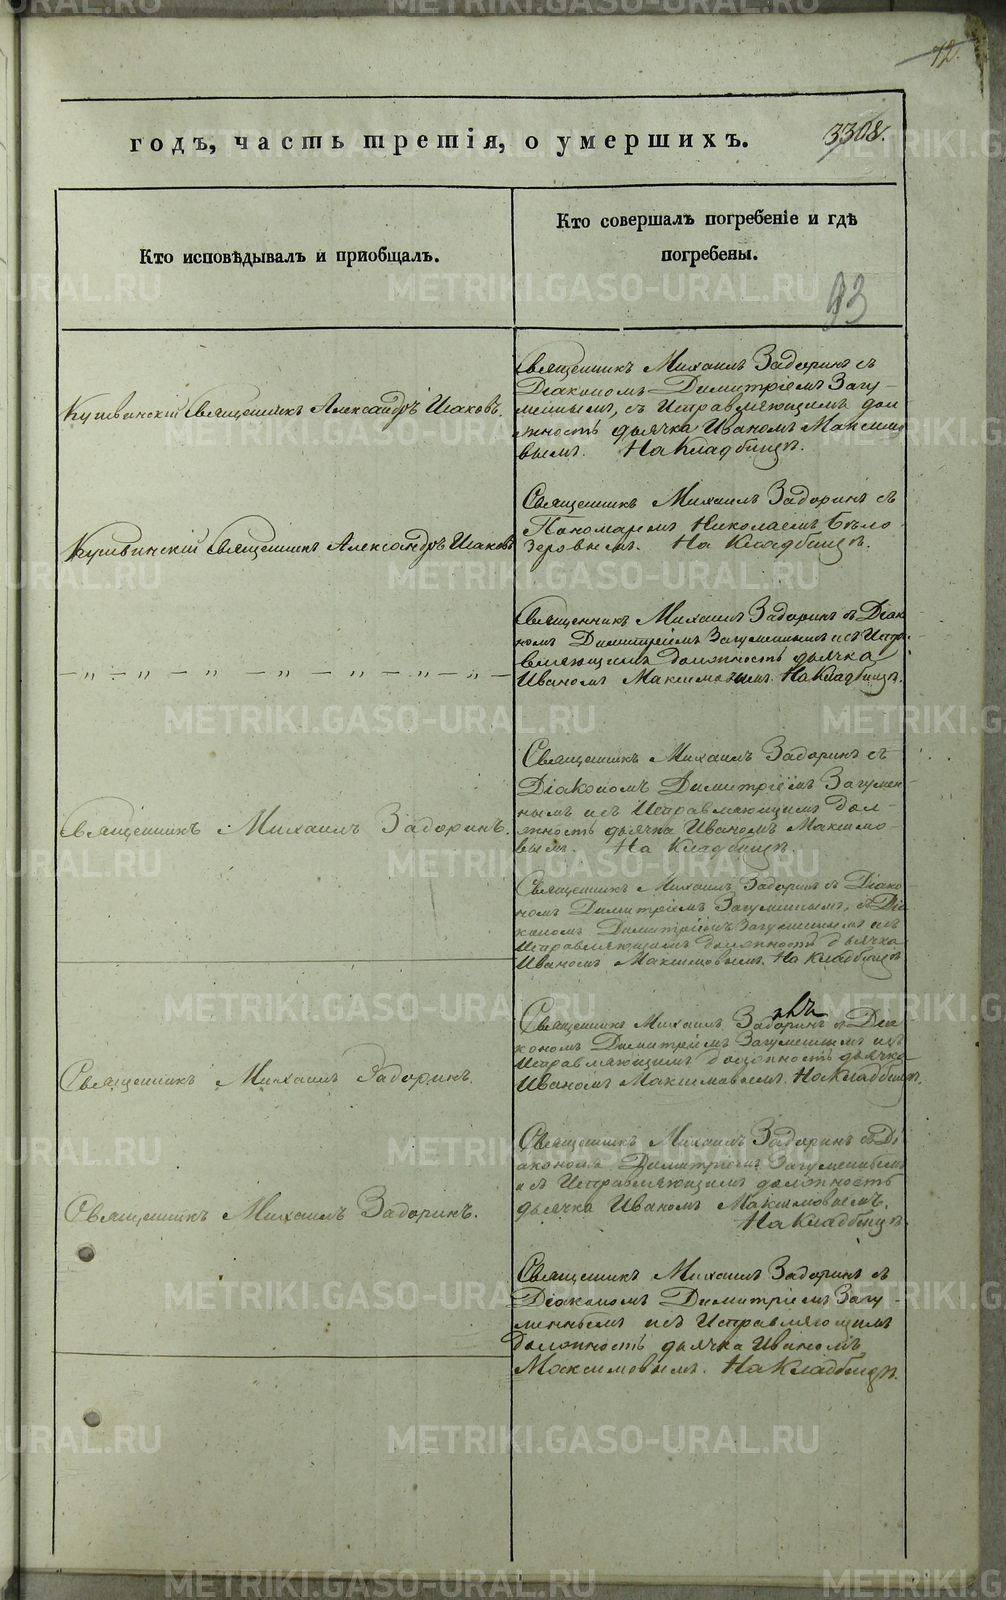 12.
годъ, часть третія, о умершихъ.
3308.
Кто исповѣдывалъ и пріобщалъ.
Кто совершалъ погребеніе и гдѣ
погребены.
93
Кушвинскій Священникъ Александръ Исаковъ.
Священникъ Михаилъ Задоринъ съ
Діакономъ Димитріемъ Загу-
меннымъ, съ Исправляющимъ дол
жность дьячка Иваномъ Максимо
вымъ. На Кладбищѣ.
Кушвинскій Священникъ Александръ Исаковъ
Священникъ Михаилъ Задоринъ съ
Пономаремъ Николаемъ Бѣло
зеровымъ. На Кладбищѣ.
— „ — „ — „ — „ — „ — „ —
Священникъ Михаилъ Задоринъ съ Діако
номъ Димитріемъ Загуменнымъ и съ Испра-
вляющимъ должность дьячка
Иваномъ Максимовымъ. На Кладбищѣ.
Священникъ Михаилъ Задоринъ.
Священникъ Михаилъ Задоринъ съ
Діакономъ Димитріемъ Загумен-
нымъ и съ Исправляющимъ дол-
жность дьячка Иваномъ Максимо-
вымъ. На Кладбищѣ.
Священникъ Михаилъ Задоринъ съ Діако-
номъ Димитріемъ Загуменнымъ, съ Діа
кономъ Димитріемъ Загуменнымъ и съ
Исправляющимъ должность дьячка
Иваномъ Максимовымъ. На Кладбищѣ
Священникъ Михаилъ Задоринъ.
Священникъ Михаилъ Задоринъ съ Діа
кономъ Димитріемъ Загуменнымъ и съ
Исправляющимъ должность дьячка
Иваномъ Максимовымъ. На Кладбищѣ.
Священникъ Михаилъ Задоринъ.
Священникъ Михаилъ Задоринъ съ Ді
акономъ Димитріемъ Загуменнымъ
и съ Исправляющимъ должность
дьячка Иваномъ Максимовымъ.
На Кладбищѣ.
Священникъ Михаилъ Задоринъ съ
Діакономъ Димитріемъ Загу-
меннымъ и съ Исправляющимъ
должность дьячка Иваномъ
Максимовымъ. На Кладбищѣ.
METRIKI.GASO-URAL.RU